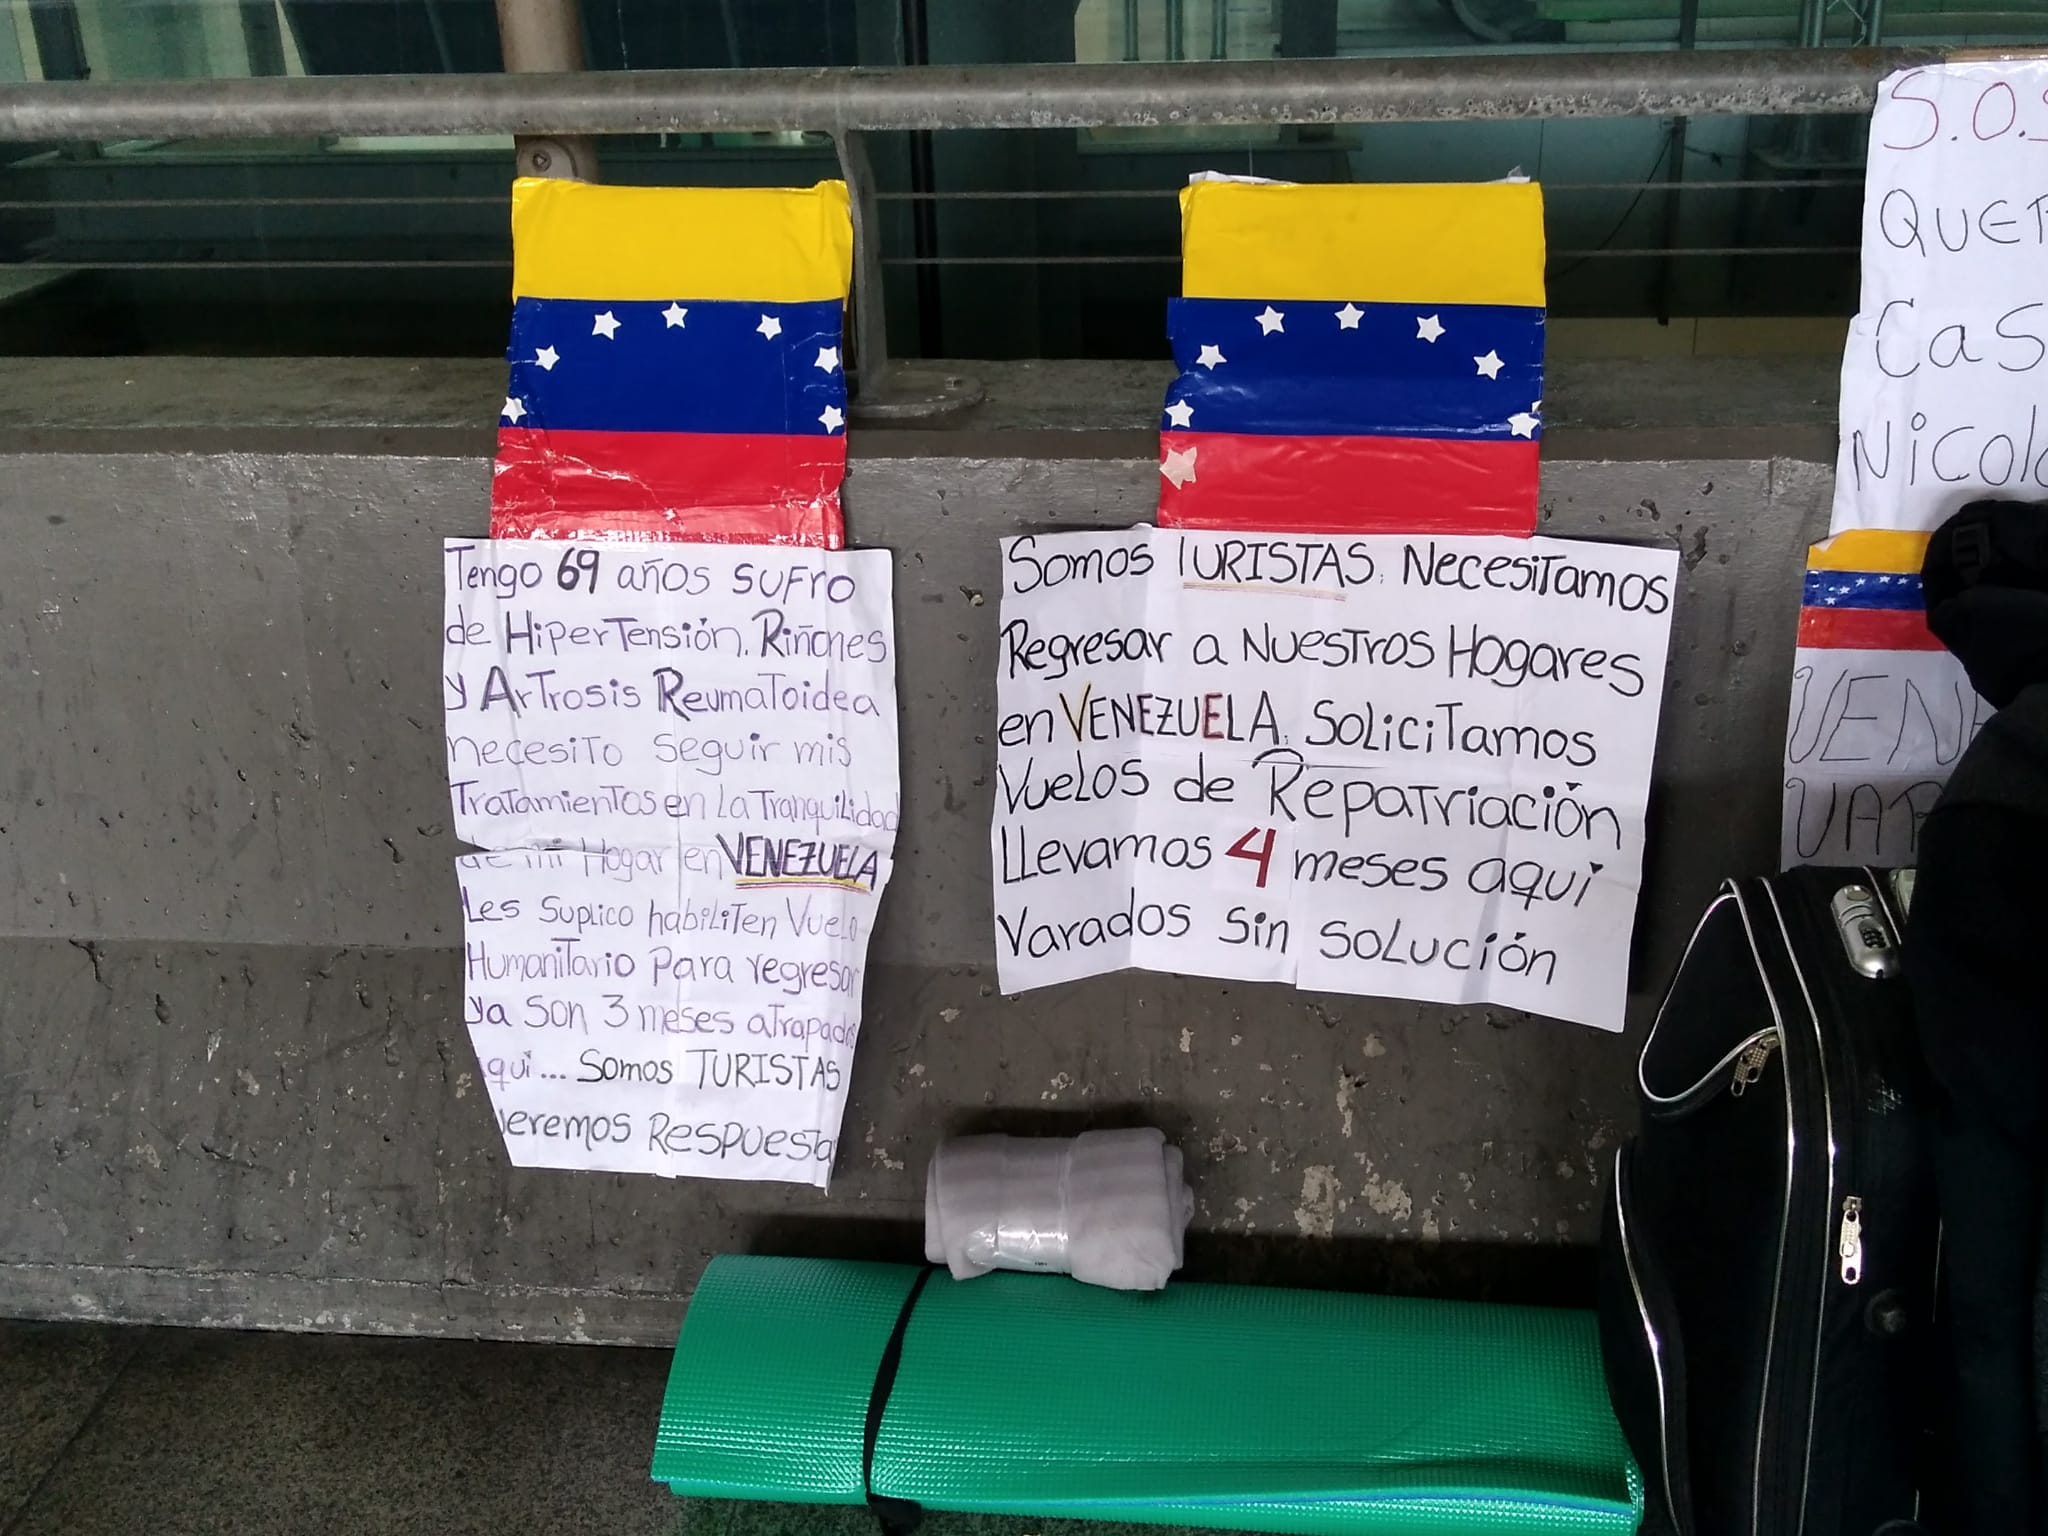 Tengo 69 años SUFro
de HiperTensión. Riñones
y ArTrosis ReumaToidea
necesiTo seguir mis
TraTamienTos en La TranquiLidad
de mi Hogar en VENEZUELA
Les Suplico habiliTen Vuelo
HumaniTario para regresar
ya son 3 meses aTrapados
aqui... Somos TURISTAS
RESPUESTA
Somos TURISTAS. NecesiTamos
Regresar a NuesTros Hogares
en VENEZUELA. SoLiciTamos
VueLos de RepaTriación
LLevamos 4 meses aqui
Varados Sin SoLución
S.O.S